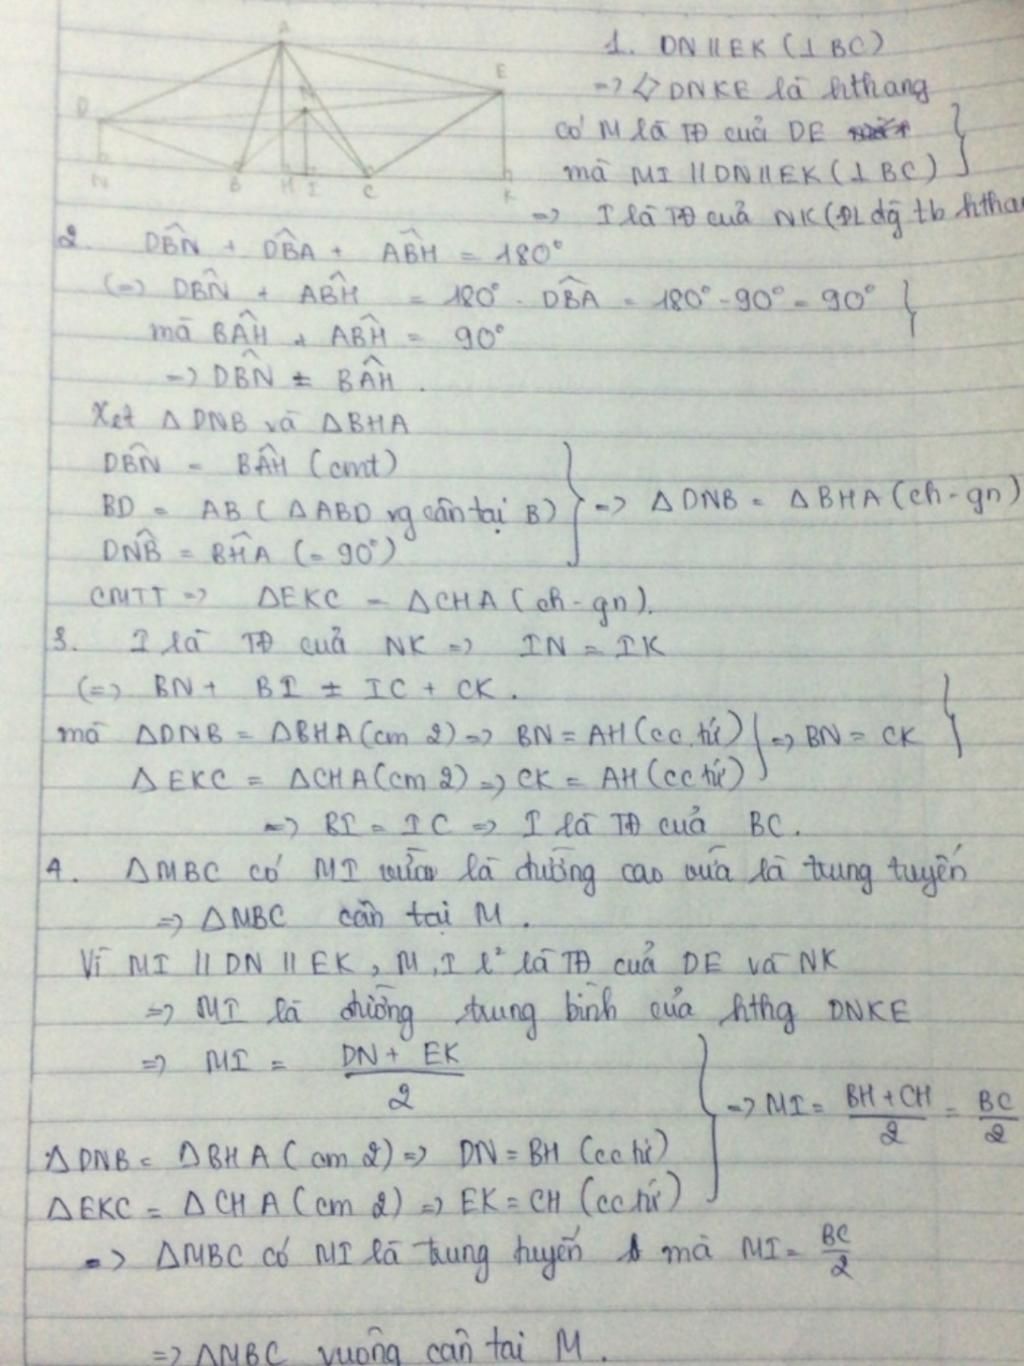 A
E
D
N
B
H
I
C
K
1. DN // EK (⊥ BC)
=> ◊ DNKE là hthang
có M là TĐ của DE
mà MI // DN // EK (⊥ BC)
=> I là TĐ của NK (ĐL đg tb hthan
2. DBN̂ + DB̂A + AB̂H = 180°
(=) DB̂N + AB̂H = 180° - DB̂A = 180° - 90° = 90°
mà BÂH + AB̂H = 90°
=> DB̂N = BÂH.
Xét Δ DNB và Δ BHA
DB̂N = BÂH (cmt)
BD = AB (Δ ABD vg cân tại B)
DN̂B = BĤA (= 90°)
=> Δ DNB = Δ BHA (ch - gn)
CMTT => ΔEKC = ΔCHA (ch - gn).
3. I là TĐ của NK => IN = IK
(=) BN + BI = IC + CK.
mà ΔDNB = ΔBHA (cm 2) => BN = AH (cc tứ)
ΔEKC = ΔCHA (cm 2) => CK = AH (cc tứ)
=> BN = CK
=> BI = IC => I là TĐ của BC.
4. ΔMBC có MI vừa là đường cao vừa là trung tuyến
=> ΔMBC cân tại M.
Vì MI // DN // EK, M, I l² là TĐ của DE và NK
=> MI là đường trung bình của hthg DNKE
=> MI = DN + EK / 2
=> MI = BH + CH / 2 = BC / 2
ΔDNB = ΔBHA (cm 2) => DN = BH (cc tứ)
ΔEKC = ΔCHA (cm 2) => EK = CH (cc tứ)
=> ΔMBC có MI là trung tuyến mà MI = BC / 2
=> ΔMBC vuông cân tại M.